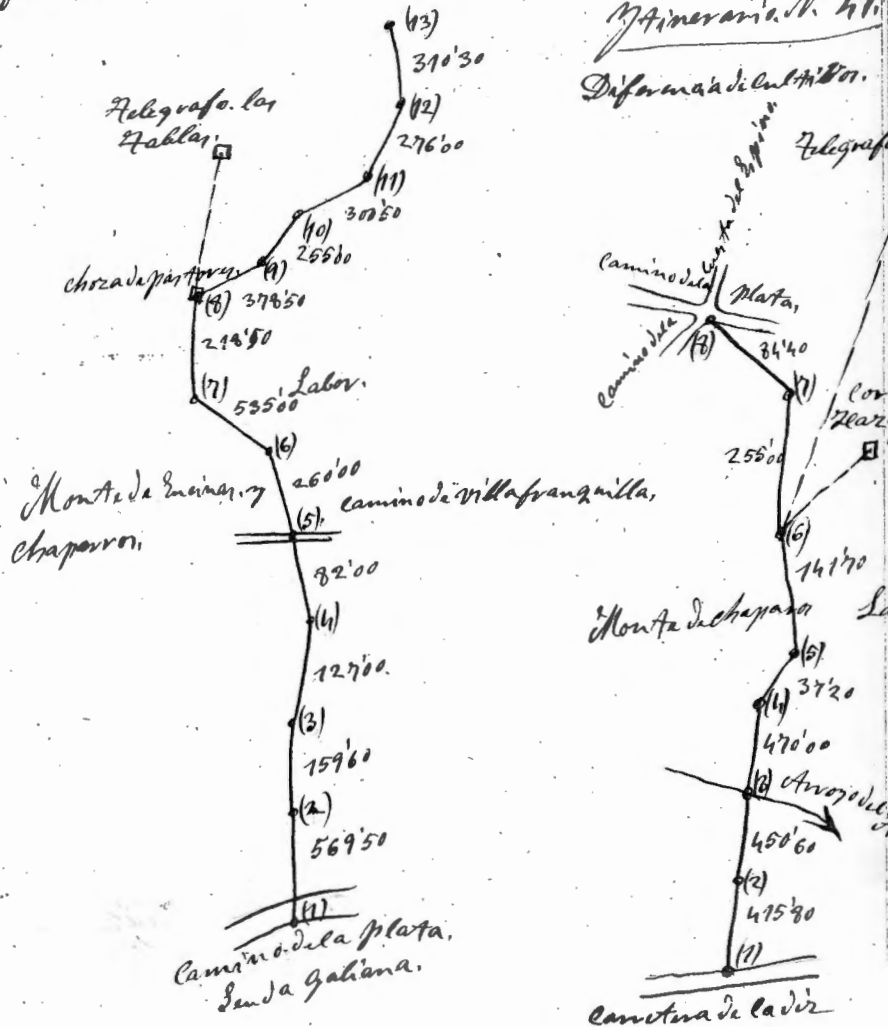 (13)
310'30
(12)
276'00
(11)
300'50
(10)
255'00
(9)
Telegrafo. las
Tablas.
Choza de pastores.
(8) 378'50
218'50
(7)
535'00 Labor.
(6)
260'00
Monte de Encinas. y
chaparros.
(5). camino de villafranquilla.
82'00
(4)
127'00.
(3)
159'60
(2)
569'50
(1)
Camino de la plata.
Senda galiana.
Ytinerario. N.
Diferencia de cultivos.
Telegrafo
cuesta del Espino.
camino de la plata.
camino de la
(8)
84'40
(7)
255'00
(6)
141'70
Monte de chaparros
(5)
37'20
(4)
470'00
(3) Arroyo del
450'60
(2)
415'80
(1)
carretera de Cadiz